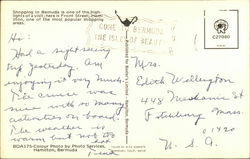 Shopping in Bermuda is one of the high-
lights of a visit; here is Front Street, Hamil-
ton, one of the most popular shopping
areas.
COME TO BERMUDA
THE ISLES OF BEAUTY
C27080
Hi:
Had a sight seeing
trip yesterday. Am
enjoying it very much.
The cruise was
nice with so many
activities on board.
The weather is
warm but not too
hot.
Mrs.
Edith Wellington
448 Mechanic St
Fitchburg Mass.
01420
U. S. A.
BDA175-Colour Photo by Photo Services,
Hamilton, Bermuda